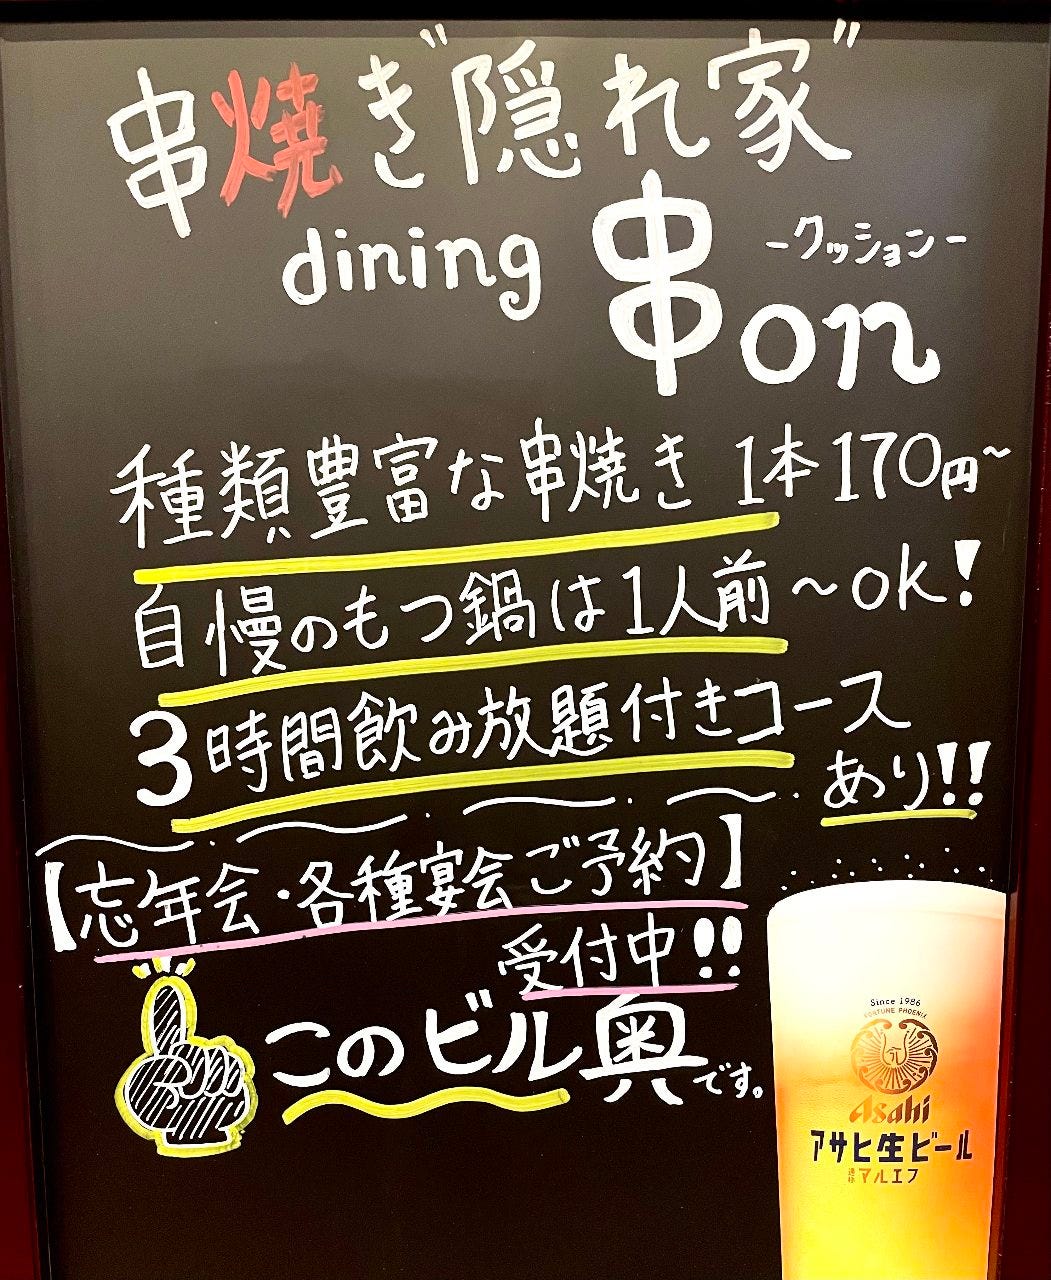 串焼き"隠れ家"
dining 串on
-クッション-
種類豊富な串焼き 1本170円~
自慢のもつ鍋は1人前~ok!
3時間飲み放題付きコース
あり!!
【忘年会・各種宴会ご予約】
受付中!!
このビル奥です。
Since 1986
FORTUNE PHOENIX
Asahi
アサヒ生ビール
通称マルエフ